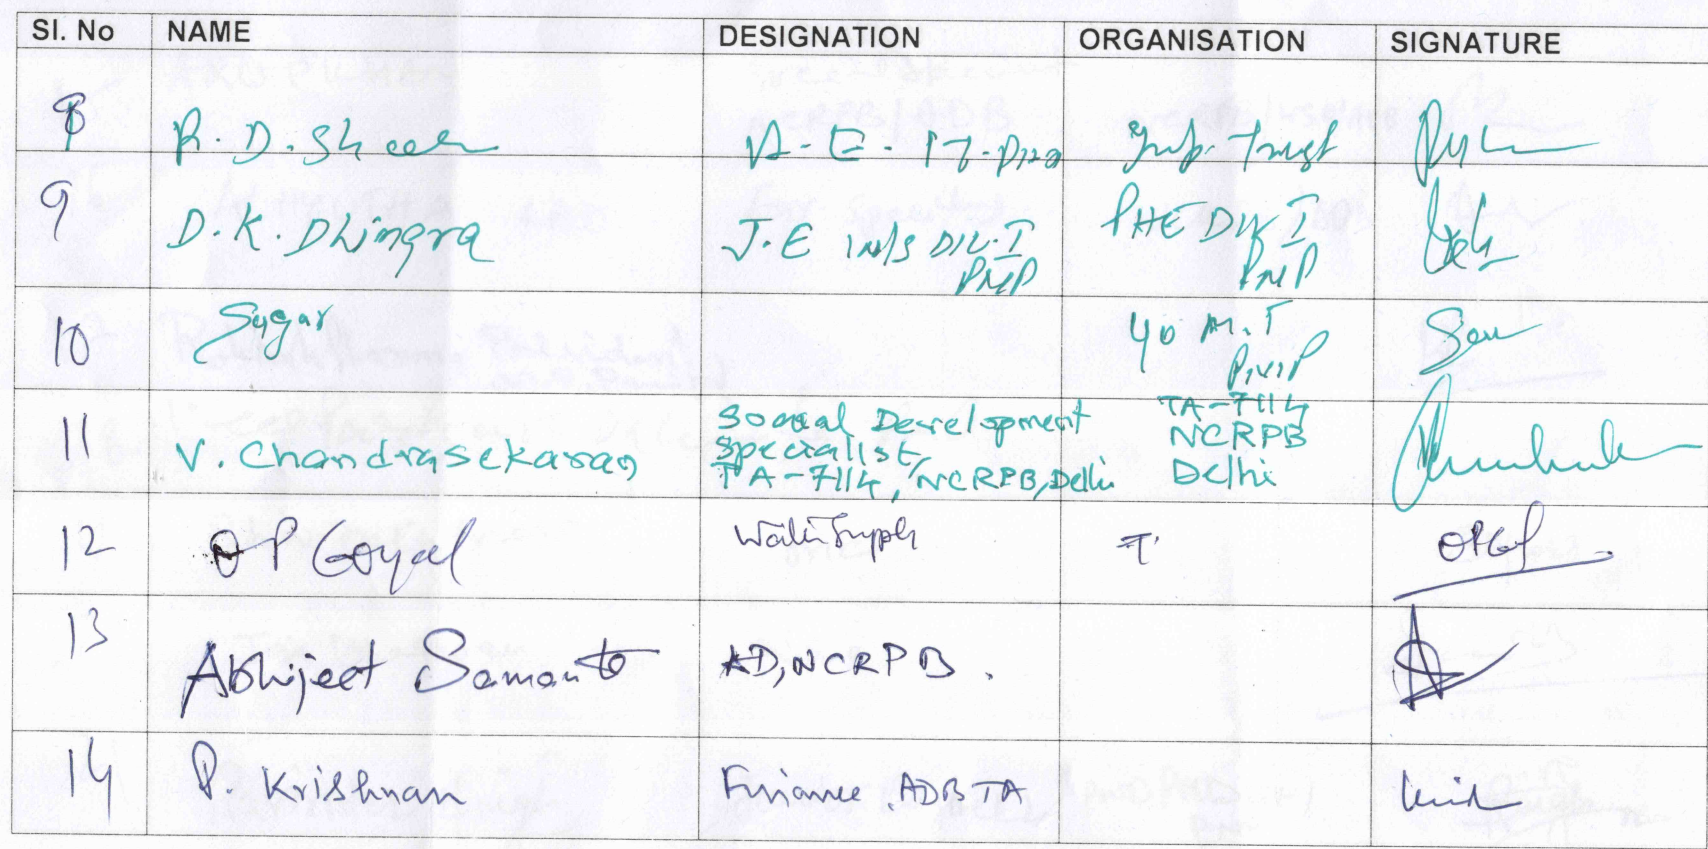 Sl. No NAME DESIGNATION ORGANISATION SIGNATURE
8 R. D. A. E. Trust
9 D. K. Dhingra J. E W/S DIV. I PHE DIV I
PNP PNP
10 Sagar
PNP
11 V. Chandrasekaran Social Development TA-7114
Specialist, NCRPB
TA-7114, NCRPB, Delhi Delhi
12 O P Goyal Water Supply OPG
13 Abhijeet Samanta AD, NCRPB.
14 P. Krishnan Finance, ADB TA